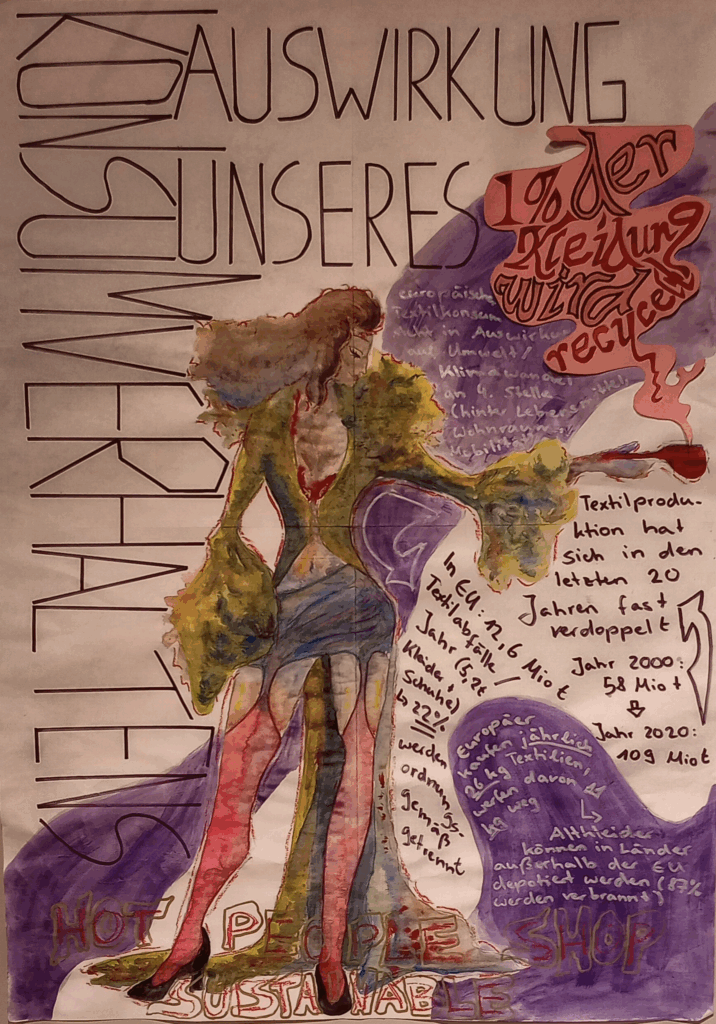 AUSWIRKUNG
UNSERES
KONSUMVERHALTENS
1% der
Kleidung
wird
recycelt
europäische
Textilkonsum
steht in Auswirkung
auf Umwelt/
Klimawandel
an 4. Stelle
(hinter Lebensmitteln
Wohnraum
Mobilität
Textilprodu-
ktion hat
sich in den
letzten 20
Jahren fast
verdoppelt
Jahr 2000:
58 Mio t
Jahr 2020:
109 Mio t
In EU: 12,6 Mio t
Textilabfälle/
Jahr (5,2t
Kleider +
Schuhe)
↳ 22%
werden
ordnungs-
gemäß
getrennt
Europäer
kaufen jährlich
26 kg Textilien,
werfen davon 11
kg weg
↳ Altkleider
können in Länder
außerhalb der EU
depotiert werden (87%
werden verbrannt)
HOT PEOPLE SHOP
SUSTAINABLE